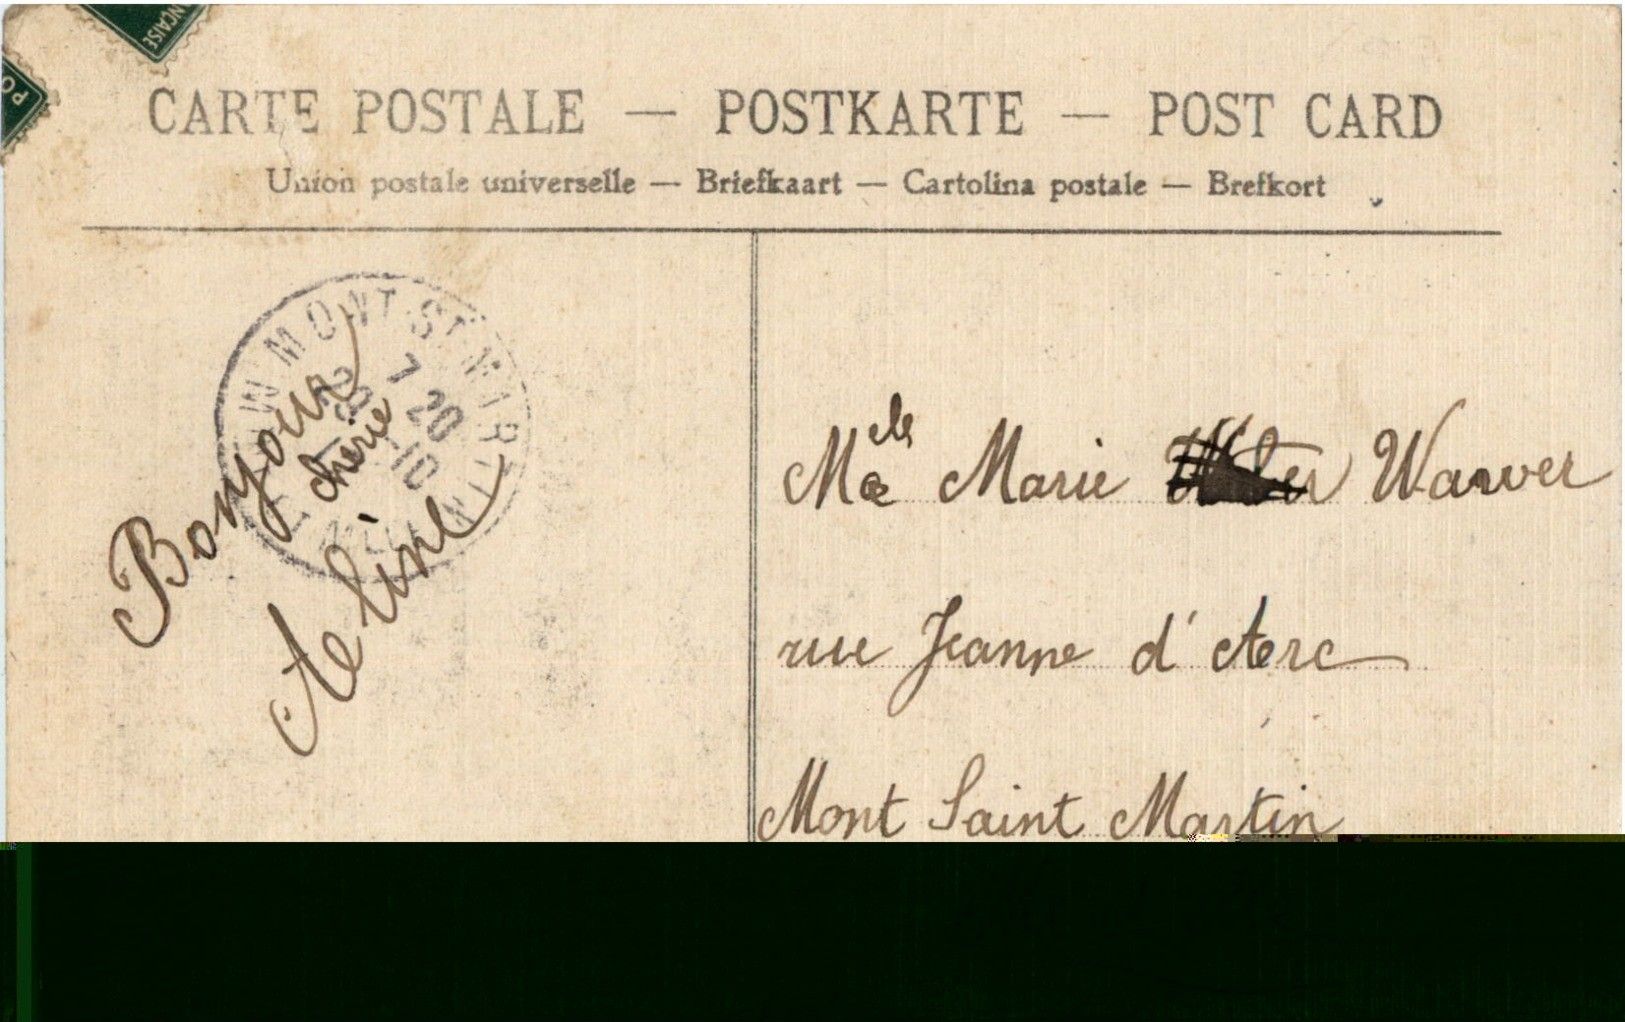 CARTE POSTALE — POSTKARTE — POST CARD
Union postale universelle — Briefkaart — Cartolina postale — Brefkort
MONT-ST-MARTIN
7 20
10
Bonjour
chérie
Aline
Melle Marie Warver
rue Jeanne d'Arc
Mont Saint Martin